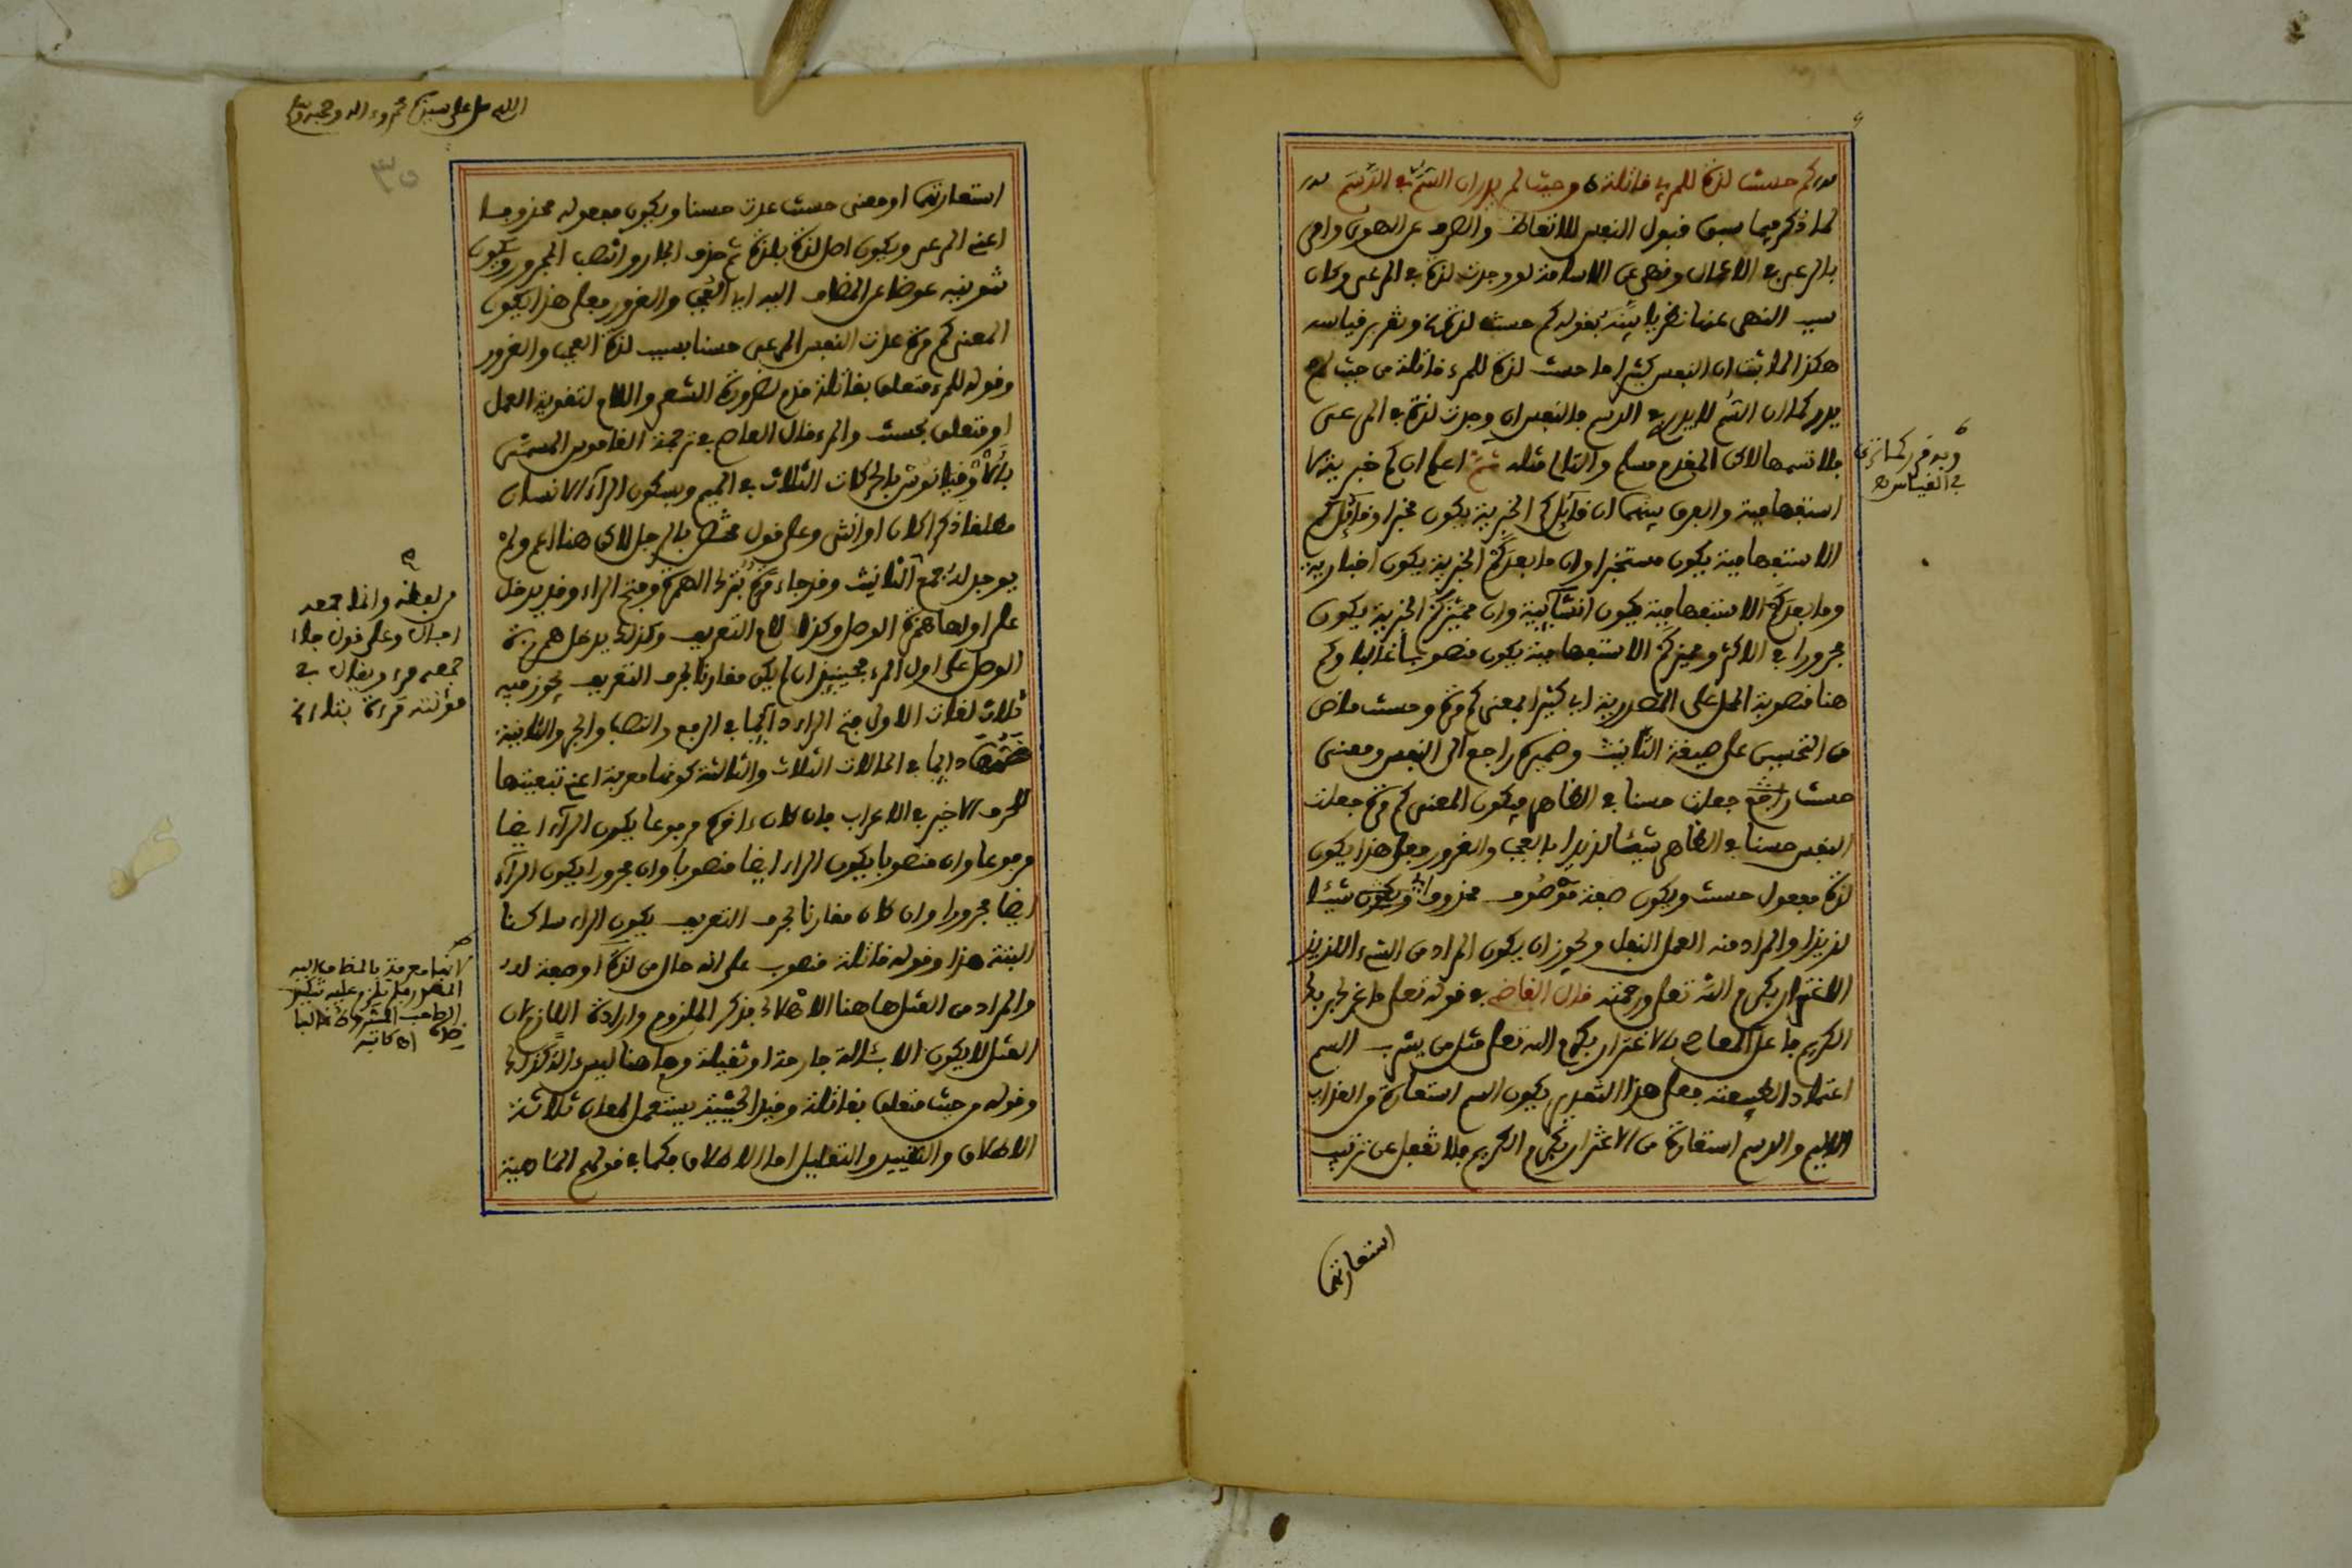 كم حسنت لذة للمرء قاتلة من حيث لم يدر ان السم في الدسم
لما ذكر فيما سبق قبول النفس للاتعاظ والصرف عن الهوى وامر
بالرعي في الاعمال ونهى عن الاسامة لو وجدت لذة في المرعى وكان
سبب النهي عنها نظريا بينه بقوله كم حسنت لذة وتقرير قياسه
هكذا لما ثبت ان النفس كثيرا ما حسنت لذة للمرء قاتلة من حيث لم
يدر كما ان السم لا يدرى في الدسم فالنفس ان وجدت لذة في المرعى
فلا تسمها لاكن المقدم مسلم والتالي مثله ثم اعلم ان كم خبرية لا
استفهامية والفرق بينهما ان قائل كم الخبرية يكون مخبرا وقائل كم
الاستفهامية يكون مستخبرا وان ما بعد كم الخبرية يكون اخبارية
وما بعد كم الاستفهامية يكون انشائية وان مميز كم الخبرية يكون
مجرورا في الاكثر ومميز كم الاستفهامية يكون منصوبا غالبا وكم
هنا منصوبة المحل على المصدرية اي كثيرا بمعنى كم مرة وحسنت ماض
من التحسين على صيغة التأنيث وضميره راجع الى النفس ومعنى
حسنت جعلت حسنا في الظاهر فيكون المعنى كم مرة جعلت
النفس حسنا في الظاهر شيئا لذيذا بالعجب والغرور فعلى هذا يكون
لذة مفعول حسنت ويكون صفة موصوف محذوف شيئا
لذيذا والمراد منه العمل النفل ويجوز ان يكون المراد من الشيء اللذيذ
الاغترار بكرم الله تعلى ورحمته قال القاضي في قوله تعلى ما غرك بربك
الكريم فاعل المعاصي بالاغترار بكرم الله تعلى مثل من يشرب السم
اعتمادا لطبيعته فعلى هذا التقدير يكون السم استعارة من العذاب
الاليم والدسم استعارة من الاغترار بكرم الكريم فلا تغفل عن ترتيب
استعارتها
وقد مر كما ترى
في القياس
اللهم صل على سيدنا محمد وءاله وصحبه
٣٥
استعارتها او معنى حسنت عدت حسنا ويكون مفعوله محذوفا
اعني المرعى ويكون اصل لذة بلذة ثم حذف الجار وانتصب المجرور ويكون
تنوينه عوضا عن المضاف اليه اي العجب والغرور فعلى هذا يكون
المعنى كم مرة عدت النفس المرعى حسنا بسبب لذة العجب والغرور
وقوله للمرء متعلق بقاتلة قدم لضرورة الشعر واللام لتقوية العمل
او متعلق بحسنت والمرء قال العاصم في ترجمة القاموس المسمى
بالاوقيانوس بالحركات الثلاث في الميم وسكون الراء الانسان
مطلقا ذكرا كان او انثى وعلى قول مختص بالرجل لاكن هنا اعم ولم
يوجد له جمع التأنيث وقد جاء مرة بترك الهمزة وفتح الراء وقد يدخل
على اولها همزة الوصل وكذا لام التعريف وكذلك يدخل همزة
الوصل على اول المرء فحينئذ ان لم يكن مقارنا بحرف التعريف يجوز فيه
ثلاث لغات الاولى فتح الراء دائما في الرفع والنصب والجر والثانية
ضمها دائما في الحالات الثلاث والثالثة كونها معربة اعني تبعيتها
للحرف الاخير في الاعراب فان كان ءاخره مرفوعا يكون الراء ايضا
مرفوعا وان منصوبا يكون الراء ايضا منصوبا وان مجرورا يكون الراء
ايضا مجرورا وان كان مقارنا بحرف التعريف يكون الراء ساكنا
البتة هذا وقوله قاتلة منصوب على انه حال من لذة او صفة لها
والمراد من القتل هاهنا الاهلاك بذكر الملزوم وارادة اللازم لان
القتل لا يكون الا بئالة جارحة او ثقيلة وهاهنا ليس كذلك
وقوله من حيث متعلق بقاتلة وقيد الحيثية يستعمل لمعان ثلاثة
الاطلاق والتقييد والتعليل اما الاطلاق فكما في قولهم الماهية
من لفظه وانما جمعه
رجال وعلى قول
جمعه مرء ويقال في
مؤنثه مرأة